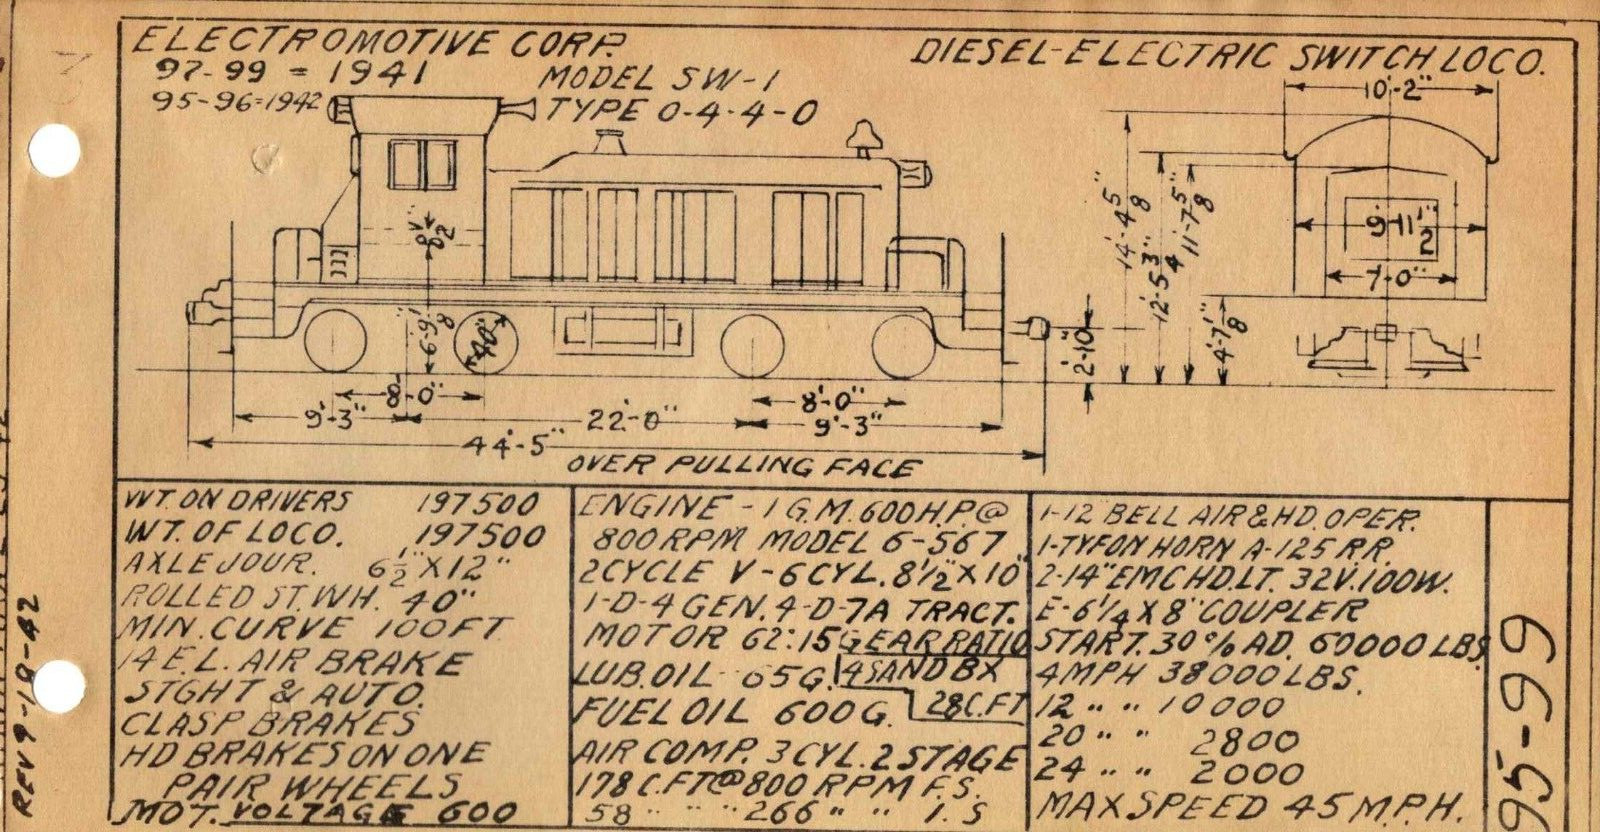 ELECTROMOTIVE CORP.
DIESEL-ELECTRIC SWITCH LOCO.
97-99 = 1941
MODEL SW-1
95-96=1942
TYPE 0-4-4-0
10'-2"
14'-4 5/8"
12'-5 3/4"
11'-7 5/8"
9'-11 1/2"
7'-0"
6'-9 1/8"
40"
2'-10"
4'-7 1/8"
8'-0"
8'-0"
9'-3"
22'-0"
9'-3"
44'-5"
OVER PULLING FACE
WT. ON DRIVERS 197500
WT. OF LOCO. 197500
AXLE JOUR. 6 1/2" X 12"
ROLLED ST. WH. 40"
MIN. CURVE 100 FT
14 E.L. AIR BRAKE
STGHT & AUTO.
CLASP BRAKES
HD BRAKES ON ONE
PAIR WHEELS
MOT. VOLTAGE 600
ENGINE - 1 G.M. 600 H.P. @
800 RPM MODEL 6-567
2 CYCLE V-6 CYL. 8 1/2" X 10"
1-D-4 GEN. 4-D-7A TRACT.
MOTOR 62:15 GEAR RATIO
LUB. OIL 65 G. 4 SAND BX
FUEL OIL 600 G. 28 C.FT
AIR COMP. 3 CYL. 2 STAGE
178 C.FT @ 800 RPM F.S.
58 " " " 266 " " I.S
1-12 BELL AIR & HD. OPER.
1-TYFON HORN A-125 R.R.
2-14" EMC HD. LT. 32V. 100W.
E-6 1/4 X 8" COUPLER
START. 30% AD. 60000 LBS.
4 MPH 38000 LBS.
12 " " 10000
20 " " 2800
24 " " 2000
MAX SPEED 45 M.P.H.
95-99
REV 9-18-42